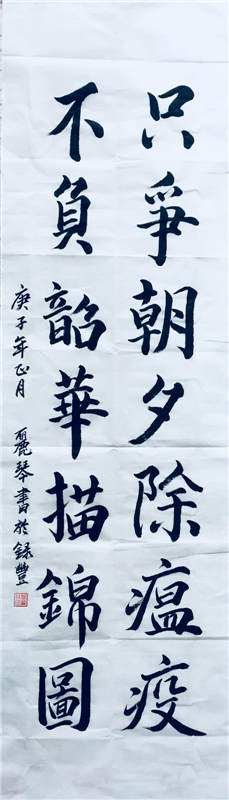 只爭朝夕除瘟疫
不負韶華描錦圖
庚子年正月 麗琴書於録豐